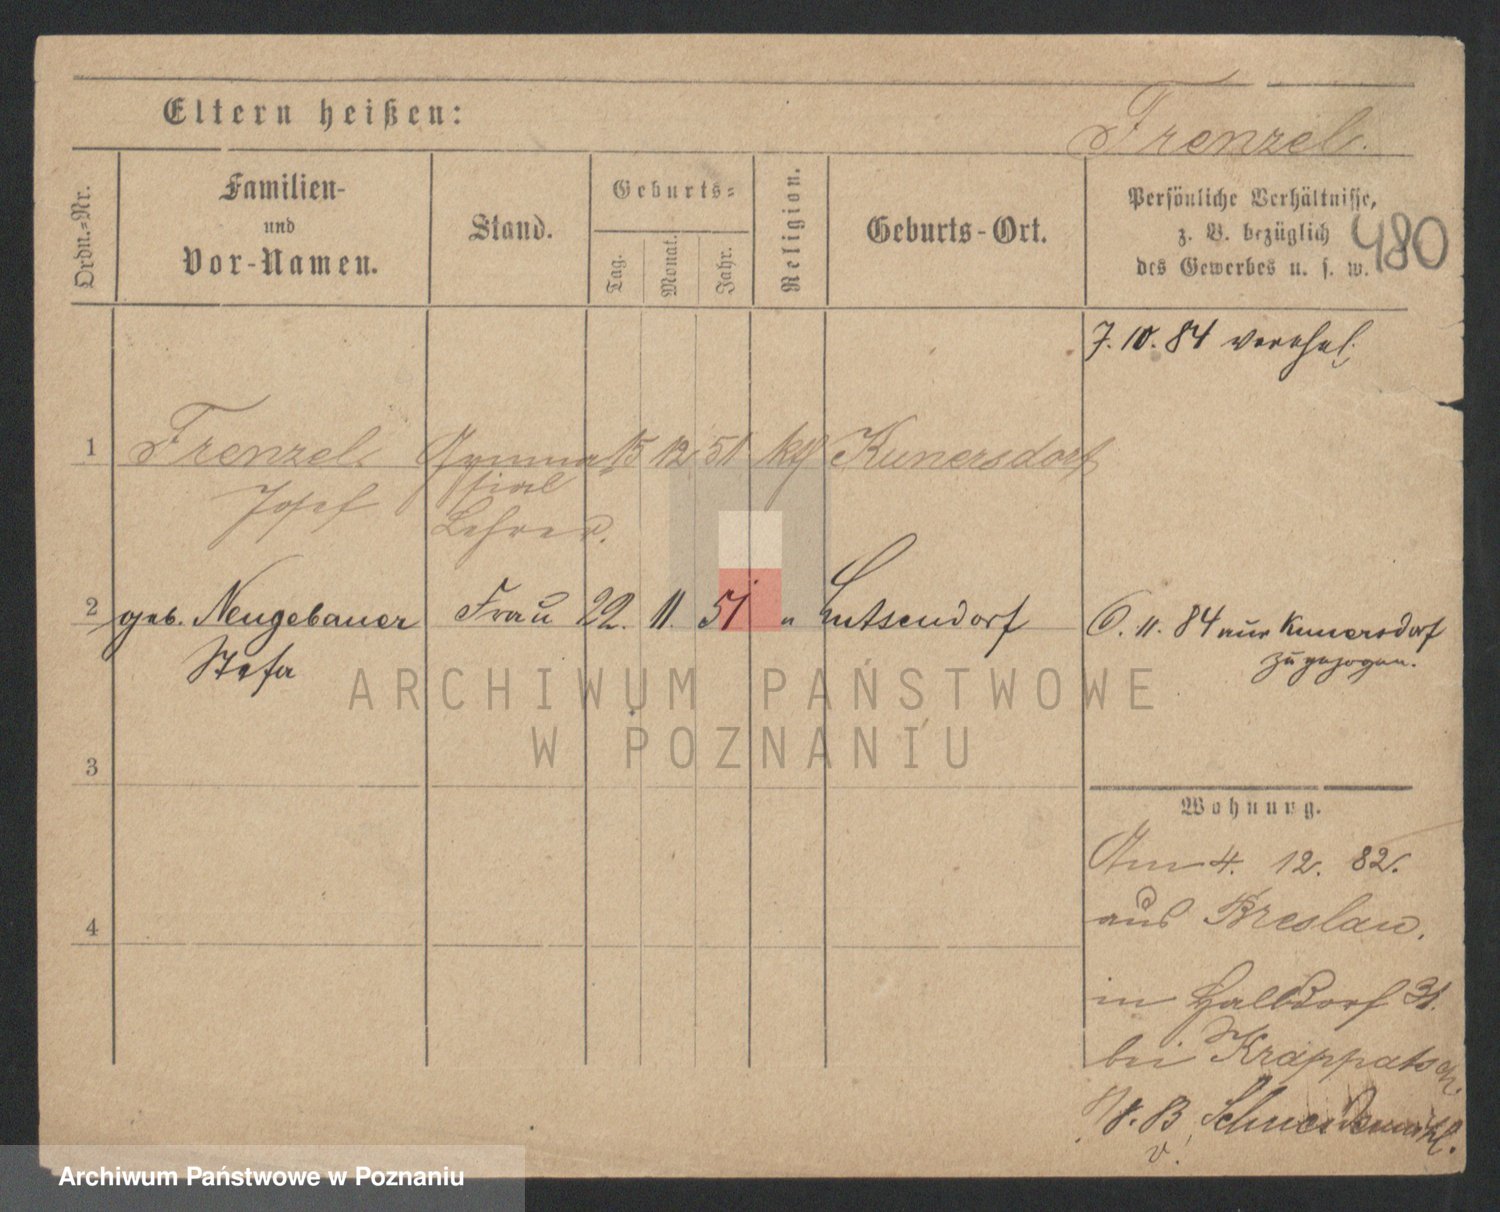 Eltern heißen:
Frenzel.
Ordn.-Nr.
Familien-
und
Vor-Namen.
Stand.
Geburts-
Tag.
Monat.
Jahr.
Religion.
Geburts-Ort.
Persönliche Verhältnisse,
z. B. bezüglich
des Gewerbes u. s. w.
480
7. 10. 84 verehel.
1 Frenzel Gymna 15 12 51 kth Kunersdorf
Josef sial
Lehrer.
2 geb. Neugebauer Frau 22. 11. 51 " Lutsendorf 6. 11. 84 aus Kunersdorf
Stefa zugezogen.
ARCHIWUM PAŃSTWOWE
W POZNANIU
3
Wohnung.
Am 4. 12. 82.
aus Breslau.
4
in Halbdorf 31.
bei Krappatsch
Schneidemühl.
v.
Archiwum Państwowe w Poznaniu